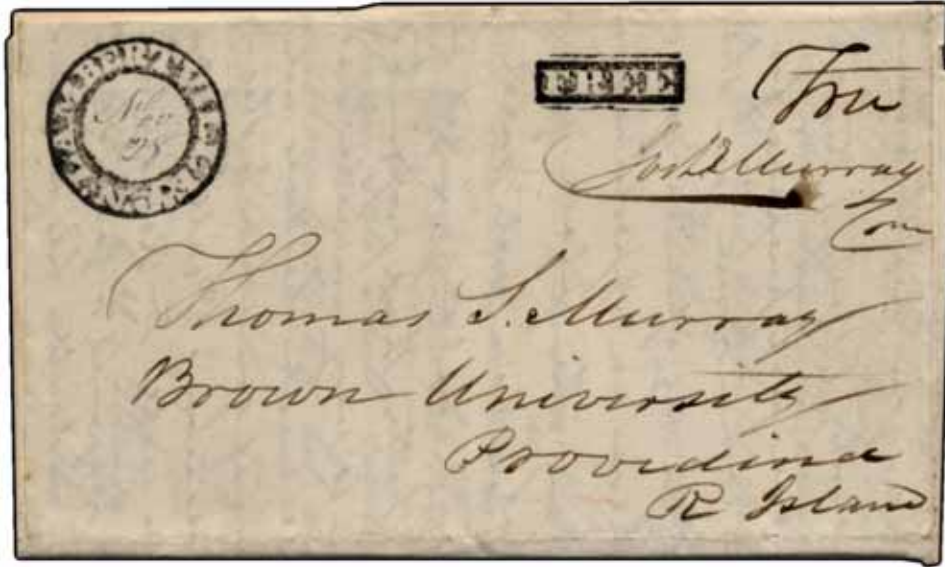 Nov
28
FREE
Free
Murray
Thomas S. Murray
Brown University
Providence
R Island